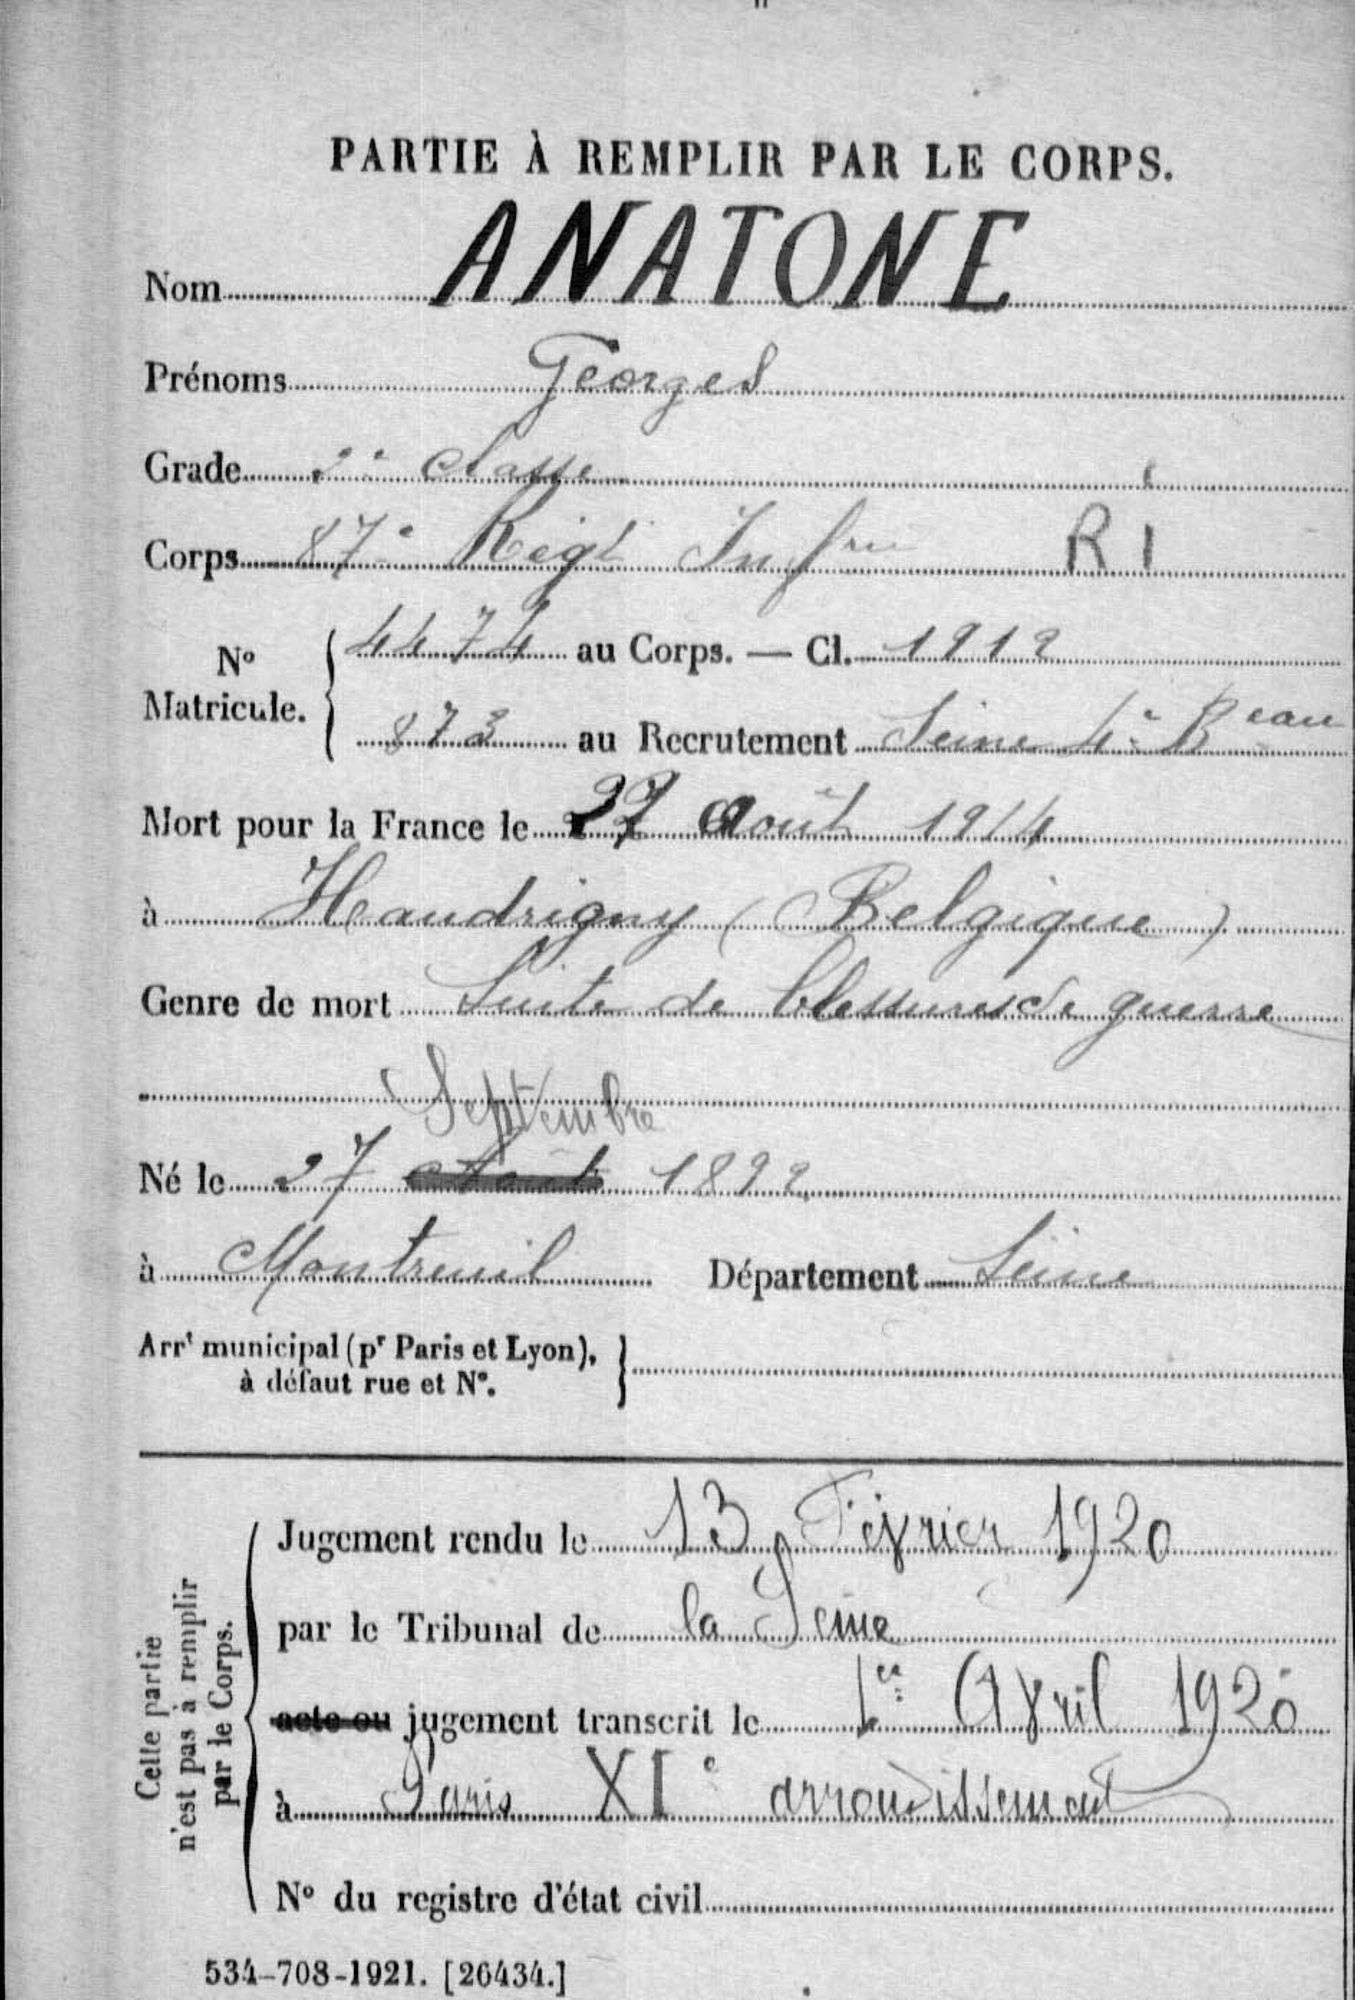 PARTIE À REMPLIR PAR LE CORPS.
Nom ANATONE
Prénoms Georges
Grade 2e classe
Corps 87e Régt Infrie R I
No Matricule. { 4474 au Corps. — Cl. 1912
873 au Recrutement Seine 4e Beau
Mort pour la France le 22 Août 1914
à Haudrigny (Belgique)
Genre de mort Suite de blessures de guerre
Septembre
Né le 27 Août 1892
à Montreuil Département Seine
Arrt municipal (pr Paris et Lyon),
à défaut rue et No.
Cette partie
n'est pas à remplir
par le Corps.
Jugement rendu le 13 Février 1920
par le Tribunal de la Seine
acte ou jugement transcrit le 1er Avril 1920
à Paris XIe arrondissement
No du registre d'état civil
534-708-1921. [26434.]